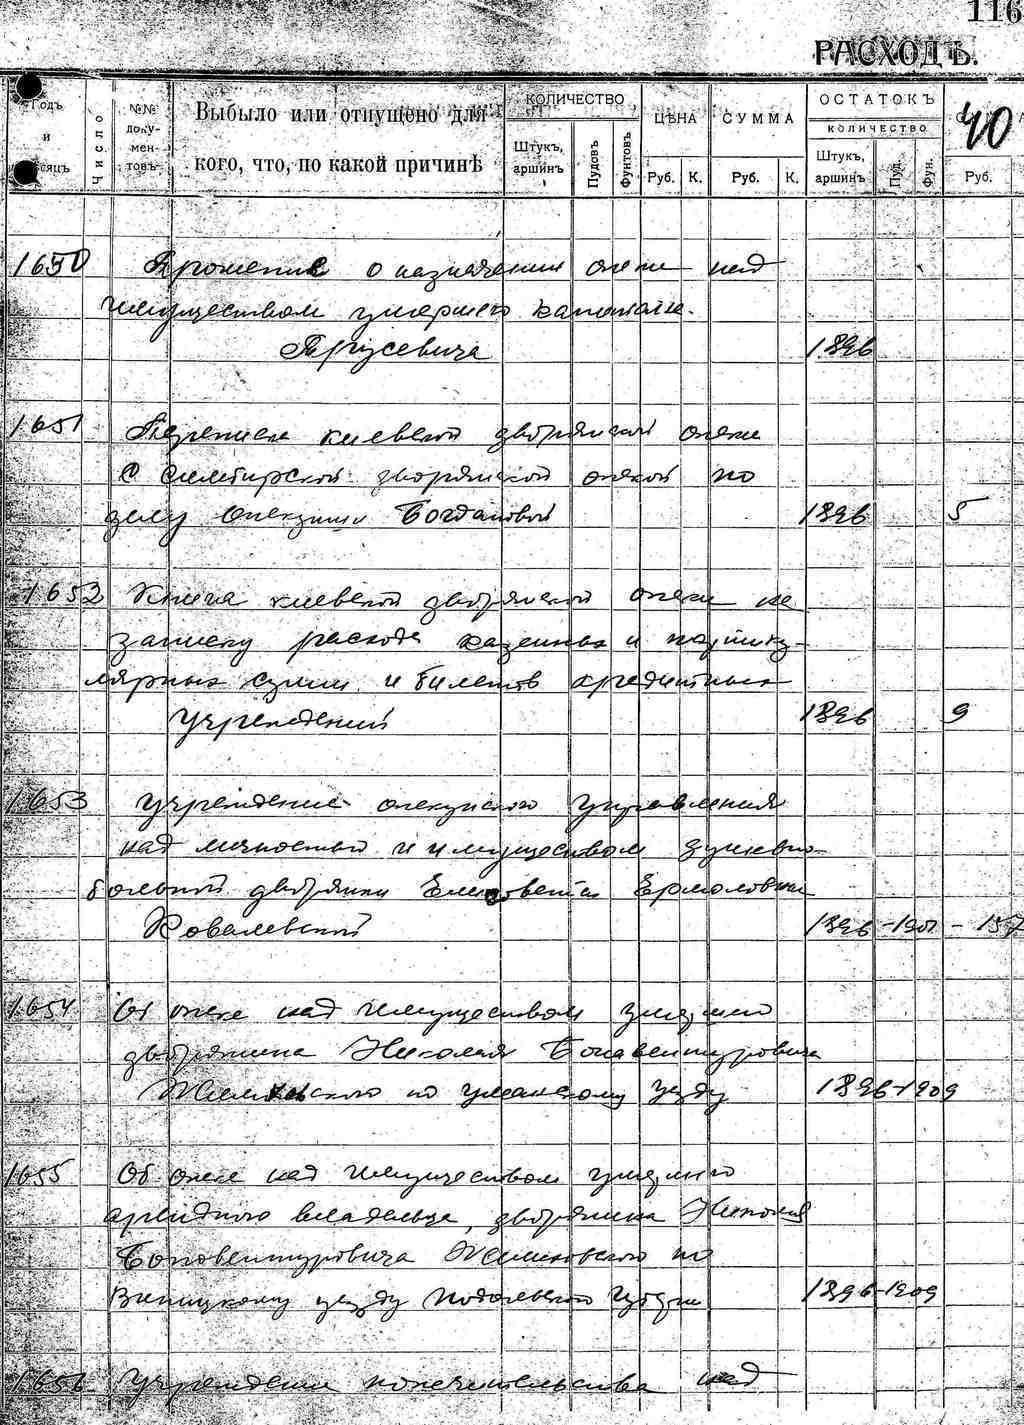 116
РАСХОДЪ.
Годъ и мѣсяцъ
Число
№№ доку-мен-товъ
Выбыло или отпущено для
кого, что, по какой причинѣ
КОЛИЧЕСТВО
Штукъ, аршинъ
Пудовъ
Фунтовъ
ЦѢНА
Руб. К.
СУММА
Руб. К.
ОСТАТОКЪ
КОЛИЧЕСТВО
Штукъ, аршинъ
Пуд.
Фун.
40
Руб.
1650 Прошение о назначении опеки над
имуществом умершего капитана
Трусевича 1896
1651 Переписка киевской дворянской опеки
с Симбирской дворянской опекой по
делу опекунши Богдановой 1896 5
1652 Книга киевской дворянской опеки на
записку расхода казенных и партику-
лярных сумм и билетов кредитных
учреждений 1896 9
1653 Учреждение опекунского управления
над личностью и имуществом душевно-
больной дворянки Елизаветы Ермоловны
Ковалевской 1896-1901 - 157
1654 Об опеке над имуществом умершего
дворянина Николая Бонавентуровича
по уманскому уезду 1896-1909
1655 Об опеке над имуществом умершего
владельца, дворянина Николая
Бонавентуровича по
Виницкому уезду Подольской губернии 1896-1909
1656 Учреждении попечительства над